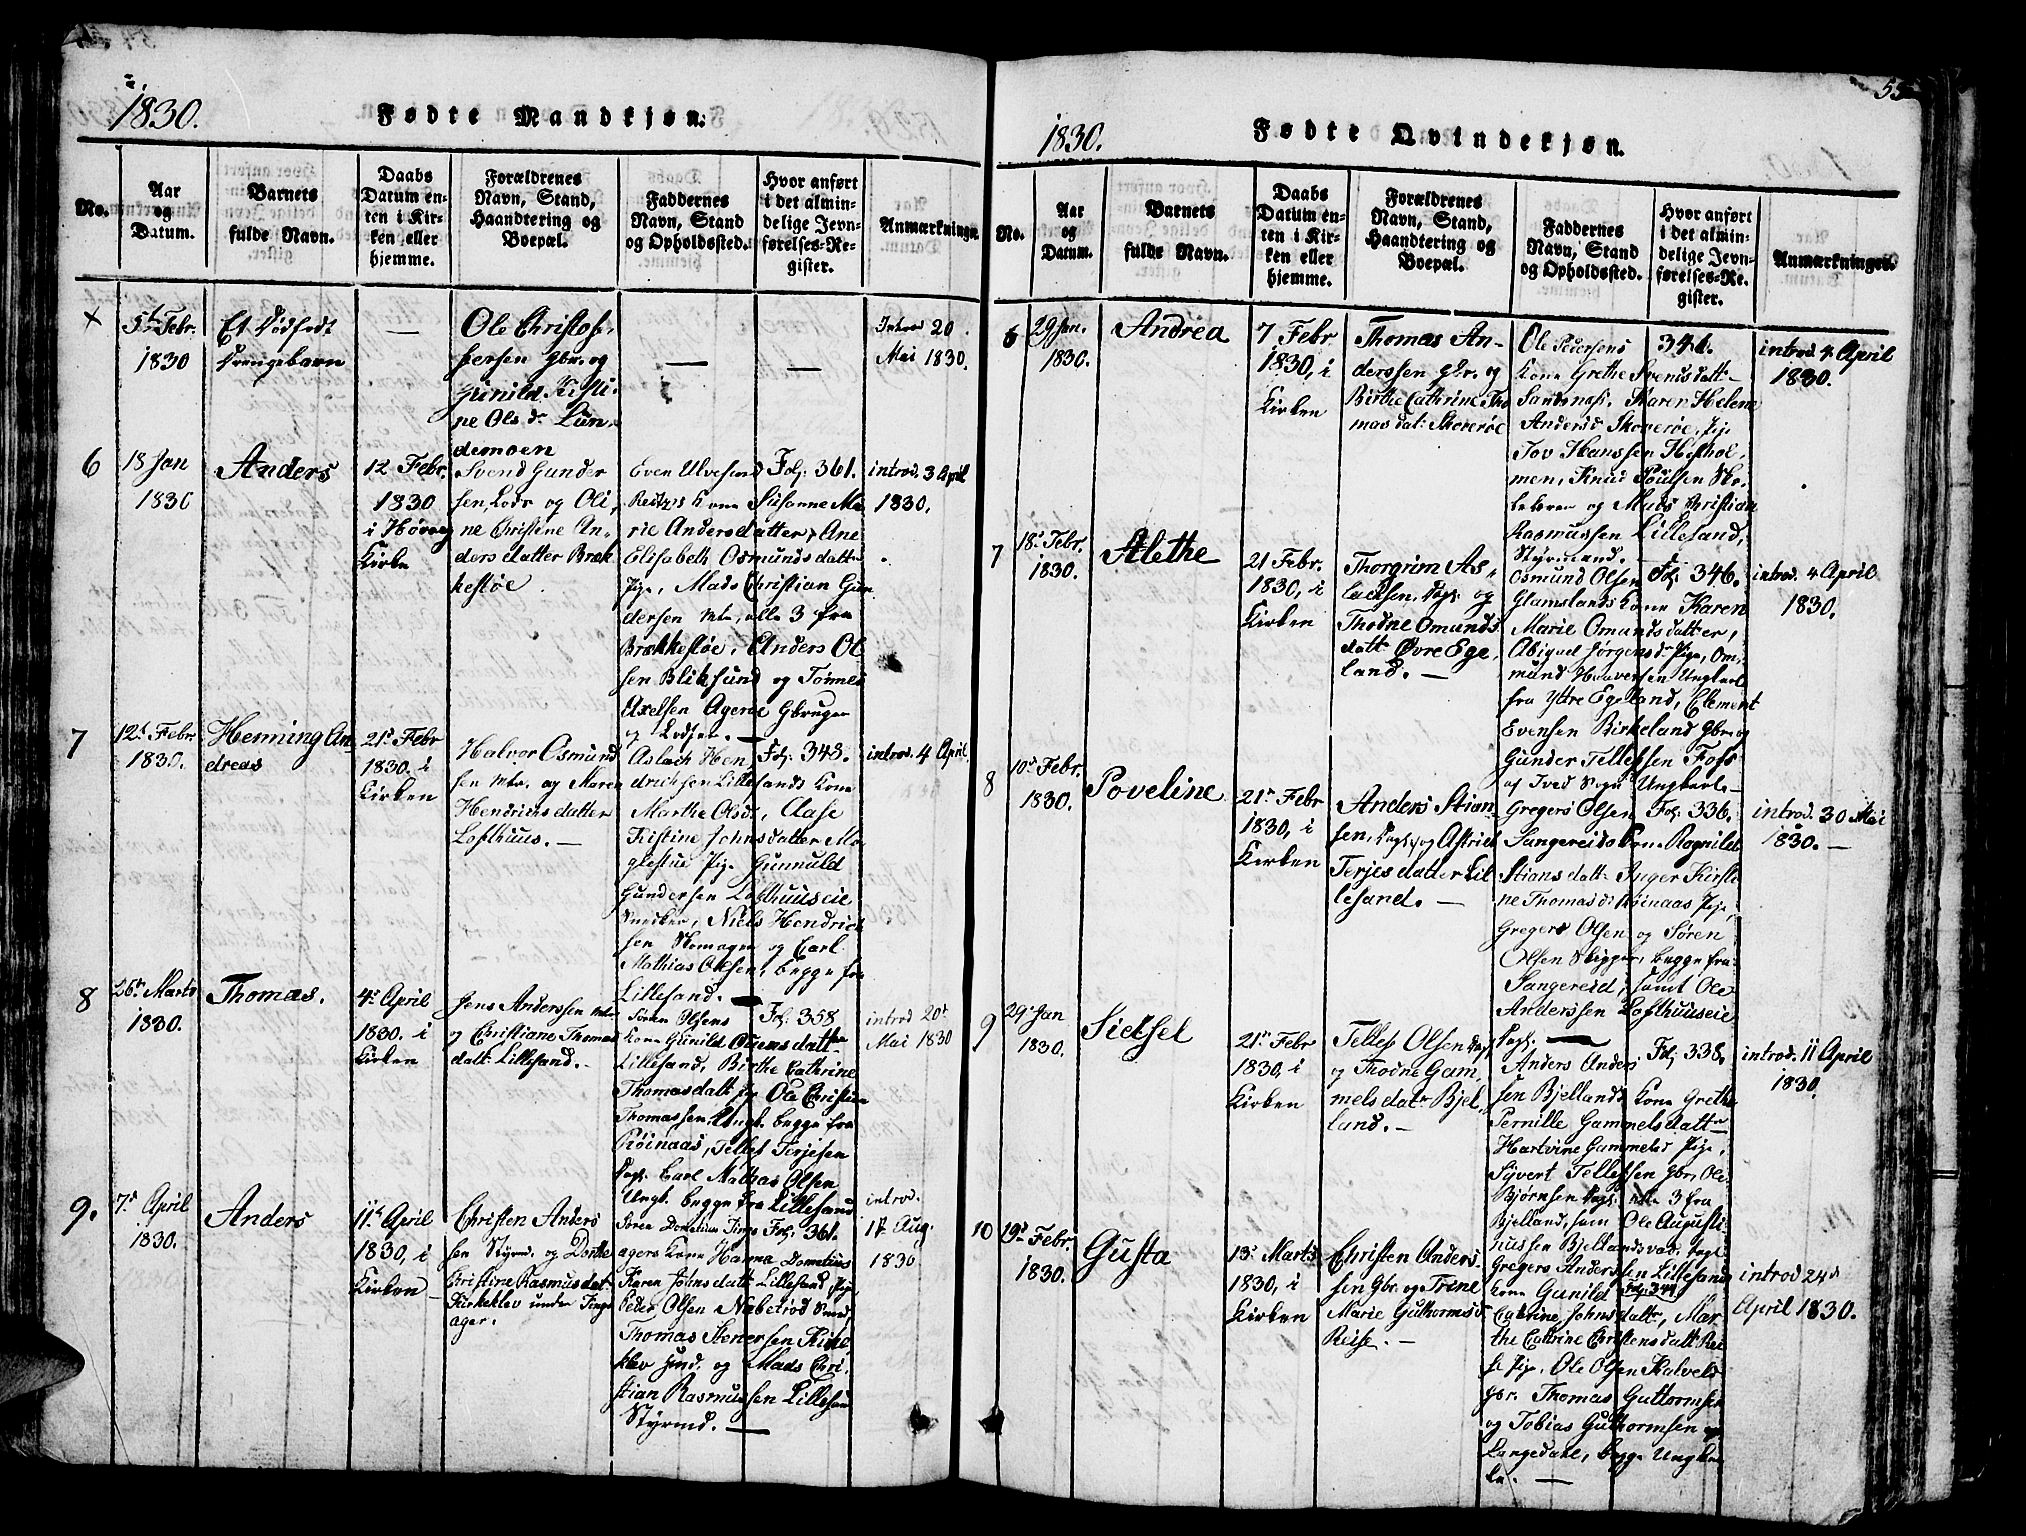 1830.
Fødte Mandkjøn.
No.
Aar
og
Datum.
Barnets
fulde Navn.
Daabs
Datum en-
ten i Kir-
ken eller
hjemme.
Forældrenes
Navn, Stand,
Haandtering og
Boepæl.
Faddernes
Navn, Stand
og Opholdssted.
Hvor anført
i det almin-
delige Jevn-
førelses-Re-
gister.
Anmærkninger.
×
5te Febr.
1830
Et Dødfødt
Drengebarn
—
Ole Christof-
fersen Gbr. og
Gunild Kisti-
ne Olsdr Lun-
demoen
—
—
Introd 20
Mai 1830.
6
18 Jan
1830
Anders
12 Febr.
1830
i Høvaag
Kirke
Svend Gunder
sen, Lods og Oli
ne Christine An-
dersdatter Bræk
kestøe
Even Ulvesund
Kone Susanne Ma
rie Andersdatter, Ane
Elisabeth Osmundsdattr
Pige, Mads Christian Gun
dersen Mtr, alle 3 fra
Brækkestøe, Anders Ol
sen Bliksund og Tønnes
Axelsen Agerøe Gbruger
og Lodser. —
Fol. 361.
introd. 3 April
1830.
7
12te Febr
1830.
Henning An
dreas
21de Febr
1830. i
Kirken
Halvor Osmund
sen Mtr. og Maren
Hendrichsdatter
Lofthuus. —
Aslach Hen
drichsen Lillesands Kone
Marthe Olsdr, Aase
Kistine Johnsdatter Mo
glestue Pige Gunnuld
Gundersen Lofthuuseie
Snedker, Niels Hendrich
sen Skomager og Carl
Mathias Olsen, begge fra
Lillesand. —
Fol. 348.
introd. 4 April
8
26de Marts
1830.
Thomas.
4de April
1830. i
Kirken
Jens Anderssen Mtr
og Christiane Thomas
datt. Lillesand. —
Søren Olsens
Kone Gunild Ouensdattr
Lillesand, Birthe Cathrine
Thomasdatt Pig Ole Christian
Thomassen, Ungk. begge fra
Røinaas, Tellef Terjesen
Dags. Carl Mathias Olsen
Ungk. begge fra Lillesand
Fol. 358
introd 20de
Mai 1830
9.
7de April
1830.
Anders
11te April
1830, i
Kirken
Christen Anders
sen Styrmd. og Dorthe
Christine Rasmusdat
Kirkeklev under Tinge
ager.
Søren Dometius Tinge
agers Kone Hanna Dometius
Karen Johnsdatt Lillesand Pige
Peder Olsen Næbetrød Snedk
Thomas Stenersen Kirke
klev Jund. og Mads Chri
stian Rasmussen Lillesand
Styrmd. —
Fol. 361.
introd.
17. Aug.
1830
1830.
Fødte Qvindekjøn.
55
No.
Aar
og
Datum.
Barnets
fulde Navn.
Daabs
Datum en-
ten i Kir-
ken eller
hjemme.
Forældrenes
Navn, Stand,
Haandtering og
Boepæl.
Faddernes
Navn, Stand
og Opholdssted.
Hvor anført
i det almin-
delige Jevn-
førelses-Re-
gister.
Anmærkninger.
6
29 Jan.
1830.
Andrea
7 Febr
1830, i
Kirken
Thomas An-
derssen Gbr. og
Birthe Cathrine Tho
masdatr Skovrøe
Ole Pedersens
Kone Grethe Svendsdatt
Sandsnæs, Karen Helene
Andersd Skoverøe, Pige
Jov Hanssen Hestehol-
men, Knud Poulsen
og Mads Christian
Rasmussen Lillesand,
Styrmand. —
341.
introd 4 April
1830.
7
18de Febr.
1830.
Alethe
21 Febr.
1830, i
Kirken
Thorgrim As-
lachsen, Dags. og
Thodne Omunds
datt Øvre Ege-
land. —
Osmund Olsen
Glamslands Kone Karen
Marie Omundsdatter,
Abigael Jørgensdr Pige, Om-
mund Haaversen Ungkarl
fra Yttre Egeland, Clement
Evensen Birkeland Gbr. og
Gunder Tellefsen Fofs
af Tved Sogn Ungkarle —
Fol. 346.
introd. 4 April
1830.
8
10de Febr.
1830.
Poveline
21de Febr
1830, i
Kirken
Anders Stian-
sen, Dags. og Astrid
Terjesdatter Lil
lesand. —
Gregers Olsen
Sangereids Kone Ragnild
Stiansdatt Inger Kirsti
ne Thomasdr Røinaas Pige
Gregers Olsen og Søren
Olsen Skipper, begge fra
Sangereid, samt Ole
Anderssen Lofthuuseie
Dags. —
Fol. 336.
introd. 30 Mai
1830. —
9
29de Jan
1830.
Sidsel
21de Febr
1830, i
Kirken
Tellef Olsen Dags
og Thodne Gam-
melsdatr Bjel-
land. —
Anders Anders
sen Bjellands Kone Grethe
Pernille Gammelsdatt
Hartvine Gammelsd Pige,
Syvert Tellefsen Gbr, Ole
Bjørnsen Dags. alle 3 fra
Bjelland, som Ole Augusti-
nussen Bjellandsvad, Dags.
Fol. 338.
introd. 11 April
1830.
10
19de Febr.
1830.
Gusta
13de Marts
1830, i
Kirken
Christen Anders
sen Gbr. og Trine
Marie Guthormsd
Reise. —
Gregers Anderssen Lillesands
Kone Gunild
Cathrine Johnsdattr, Mar
the Cathrine Christensdatt Rei
se Pige, Ole Olsen Kalveld
Gbr. Thomas Guttormsen
og Tobias Guthormsen
Langedahl, begge Ungkar
le. —
introd 24de
April 1830.